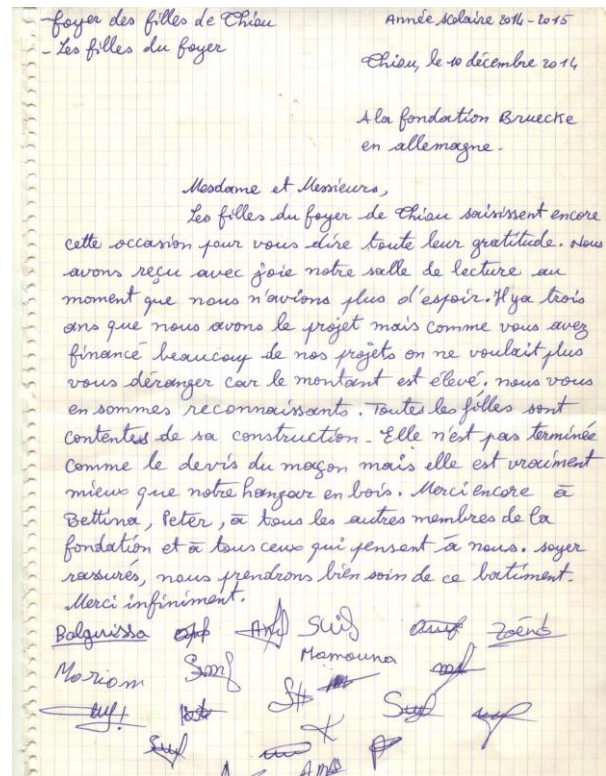 - foyer des filles de Thiou
Année scolaire 2014-2015
- Les filles du foyer
Thiou, le 10 décembre 2014
A la fondation Bruecke
en allemagne.
Mesdame et Messieurs,
Les filles du foyer de Thiou saisissent encore
cette occasion pour vous dire toute leur gratitude. Nous
avons reçu avec joie notre salle de lecture au
moment que nous n'avions plus d'espoir. Il ya trois
ans que nous avons le projet mais comme vous avez
financé beaucoup de nos projets on ne voulait plus
vous déranger car le montant est élevé. nous vous
en sommes reconnaissants. Toutes les filles sont
contentes de sa construction - Elle n'est pas terminée
comme le devis du maçon mais elle est vraiment
mieux que notre hangar en bois. Merci encore à
Bettina, Peter, à tous les autres membres de la
fondation et à tous ceux qui pensent à nous. soyer
rassurés, nous prendrons bien soin de ce batiment.
Merci infiniment.
Balguissa
Mariam
Mamouna